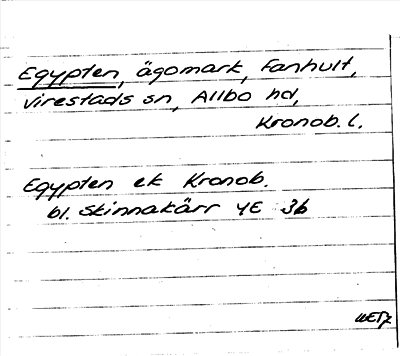 Egypten, ägomark, Fanhult,
Virestads sn, Allbo hd,
Kronob. l.
Egypten ek Kronob.
bl. Skinnakärr 4E 3b